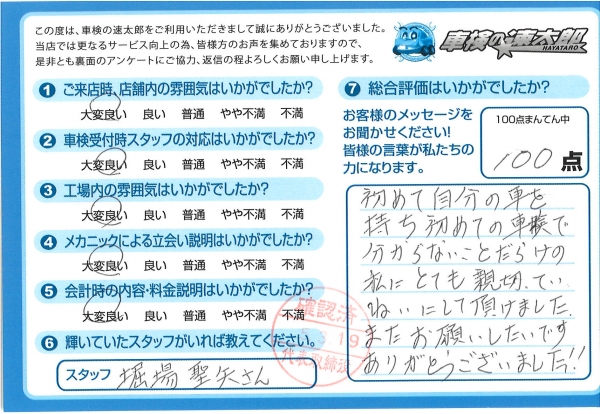 この度は、車検の速太郎をご利用いただきまして誠にありがとうございました。
当店では更なるサービス向上の為、皆様方のお声を集めておりますので、
是非とも裏面のアンケートにご協力、返信の程よろしくお願い申し上げます。
車検の速太郎
HAYATARO
1 ご来店時、店舗内の雰囲気はいかがでしたか?
大変良い 良い 普通 やや不満 不満
2 車検受付時スタッフの対応はいかがでしたか?
大変良い 良い 普通 やや不満 不満
3 工場内の雰囲気はいかがでしたか?
大変良い 良い 普通 やや不満 不満
4 メカニックによる立会い説明はいかがでしたか?
大変良い 良い 普通 やや不満 不満
5 会計時の内容・料金説明はいかがでしたか?
大変良い 良い 普通 やや不満 不満
6 輝いていたスタッフがいれば教えてください。
スタッフ 堀場 聖矢さん
7 総合評価はいかがでしたか?
お客様のメッセージを
お聞かせください!
皆様の言葉が私たちの
力になります。
100点まんてん中
100点
初めて自分の車を
持ち初めての車検で
分からないことだらけの
私にとても親切、てい
ねいにして頂けました。
またお願いしたいです
ありがとうございました!!
確認済
代表取締役